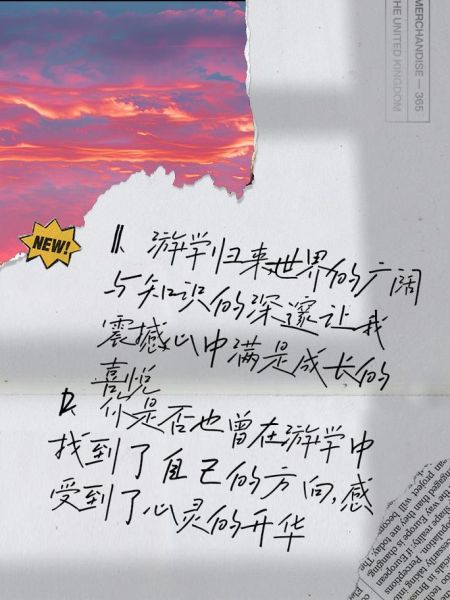 MERCHANDISE — 365
THE UNITED KINGDOM
NEW!
1. 游学归来世界的广阔
与知识的深邃让我
震撼心中满是成长的
喜悦
2. 你是否也曾在游学中
找到了自己的方向,感
受到了心灵的升华